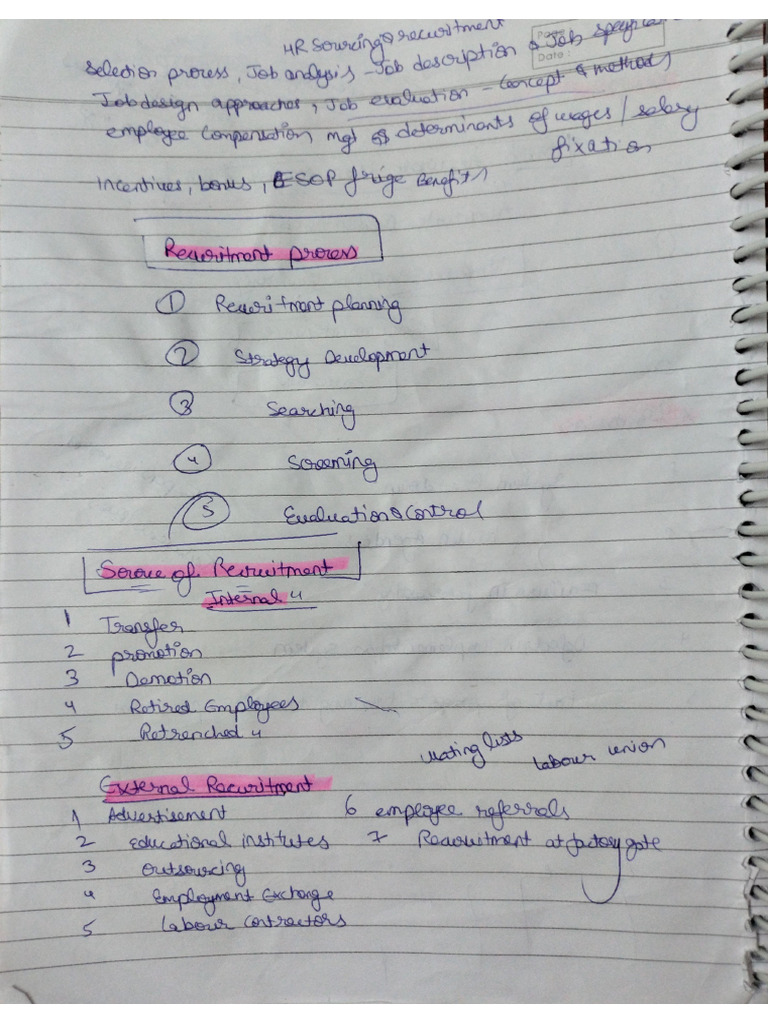 HR Sourcing & recruitment
Page:
Date:
Selection process, Job analysis - Job description & Job
Job design approaches, Job evaluation - Concept & methods
employee Compensation mgt determinants of wages / salary
fixation
Incentives, bonus, ESOP frige Benefits
Recuritment process
1 Recuritment planning
2 Strategy Development
3 Searching
4 Screening
5 Evaluation & Control
Sorce of Recuritment
Internal 4
1 Transfer
2 promotion
3 Demotion
4 Retired Employees
5 Retrenched 4
Waiting lists
Labour union
External Recuritment
1 Advertisement
2 Educational institutes
3 Outsourcing
4 Employment Exchange
5 Labour Contractors
6 employee referrals
7 Recruitment at factory gate